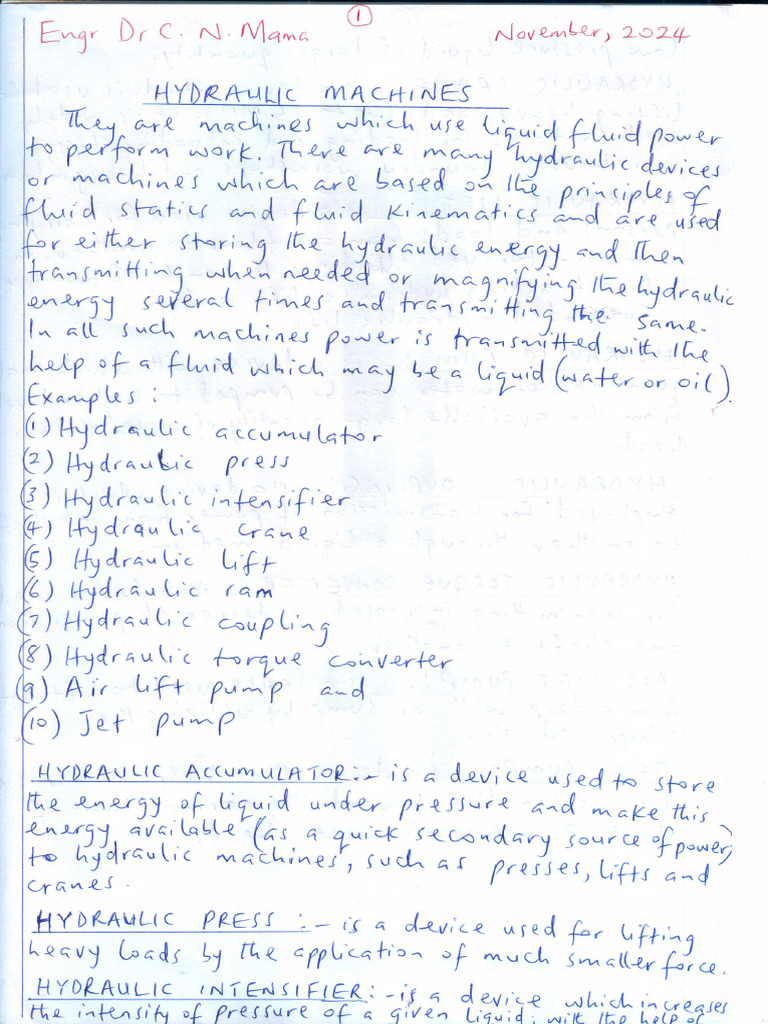 1
Engr Dr C. N. Mama November, 2024
HYDRAULIC MACHINES
They are machines which use liquid fluid power
to perform work. There are many hydraulic devices
or machines which are based on the principles of
fluid statics and fluid kinematics and are used
for either storing the hydraulic energy and then
transmitting when needed or magnifying the hydraulic
energy several times and transmitting the same.
In all such machines power is transmitted with the
help of a fluid which may be a liquid (water or oil).
Examples:
(1) Hydraulic accumulator
(2) Hydraulic press
(3) Hydraulic intensifier
(4) Hydraulic crane
(5) Hydraulic lift
(6) Hydraulic ram
(7) Hydraulic coupling
(8) Hydraulic torque converter
(9) Air lift pump and
(10) Jet pump
HYDRAULIC ACCUMULATOR:- is a device used to store
the energy of liquid under pressure and make this
energy available (as a quick secondary source of power)
to hydraulic machines, such as presses, lifts and
cranes.
HYDRAULIC PRESS:- is a device used for lifting
heavy loads by the application of much smaller force.
HYDRAULIC INTENSIFIER:- is a device which increases
the intensity of pressure of a given liquid, with the help of